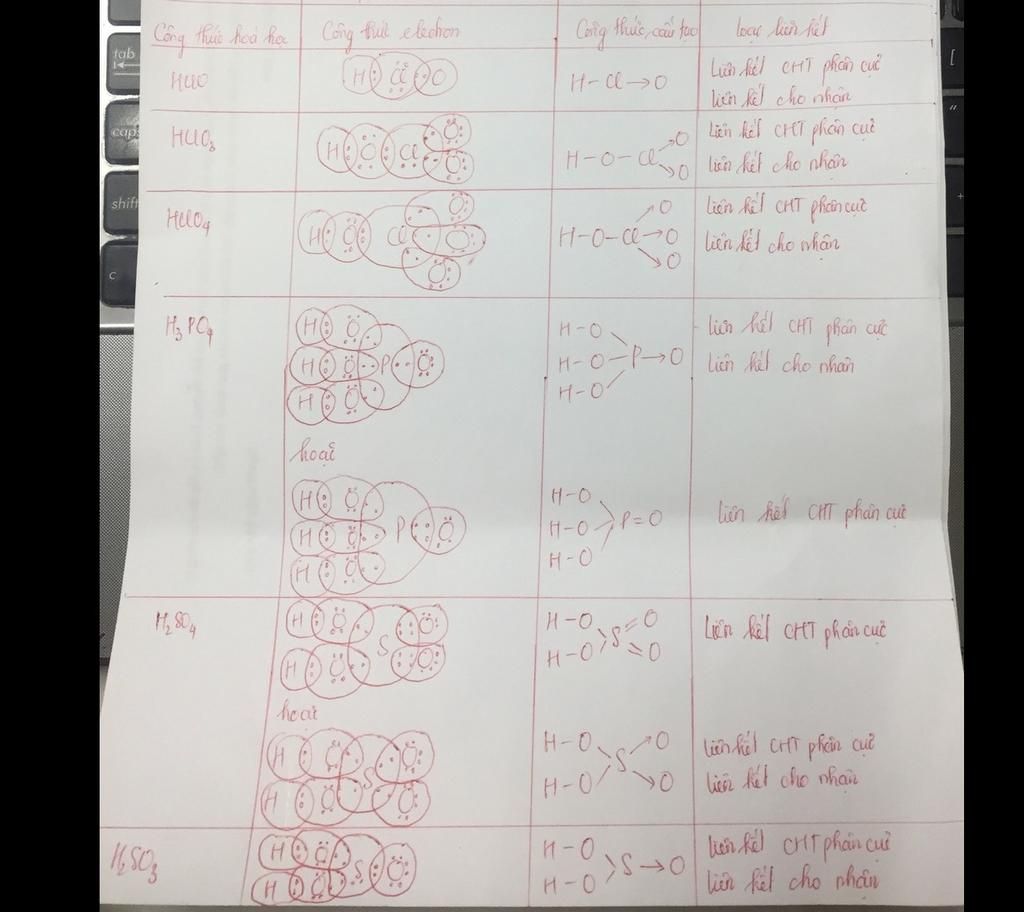 Công thức hoá học Công thức electron Công thức cấu tạo loại liên kết
HClO H Cl O H-Cl→O Liên kết CHT phân cực
liên kết cho nhận
HClO3 H O Cl O O H-O-Cl→O →O liên kết CHT phân cực
liên kết cho nhận
HClO4 H O Cl O O O H-O-Cl→O →O →O liên kết CHT phân cực
liên kết cho nhận
H3PO4 H O H-O liên kết CHT phân cực
H O P O H-O-P→O liên kết cho nhận
H O H-O
hoặc
H O H-O
H O P O H-O P=O liên kết CHT phân cực
H O H-O
H2SO4 H O S O H-O S=O Liên kết CHT phân cực
H O O H-O =O
hoặc
H O S O H-O S→O liên kết CHT phân cực
H O O H-O →O liên kết cho nhận
H2SO3 H O S O H-O S→O liên kết CHT phân cực
H O H-O liên kết cho nhận
tab
caps
shift
C
[
"
+